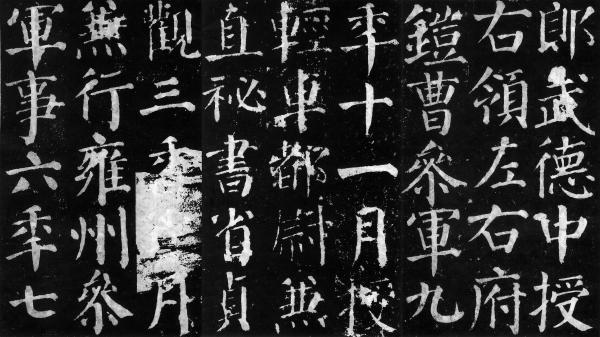 郎武德中授
右領左右府
鎧曹參軍九
年十一月授
輕車都尉兼
直秘書省貞
觀三年月
兼行雍州參
軍事六年七